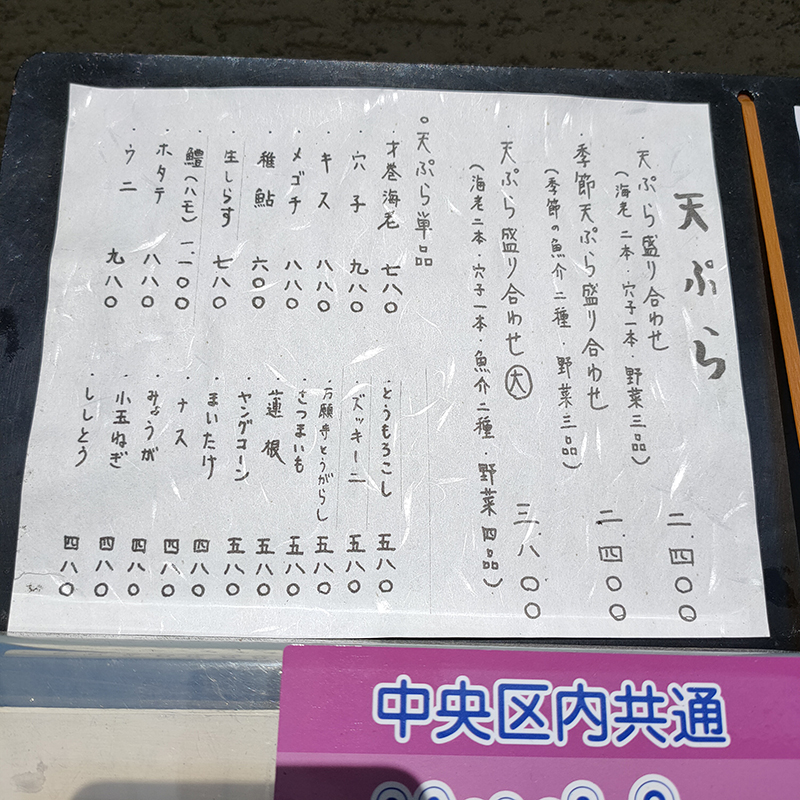 天ぷら
・天ぷら盛り合わせ 二.四〇〇
(海老二本・穴子一本・野菜三品)
・季節天ぷら盛り合わせ 二.四〇〇
(季節の魚介二種・野菜三品)
・天ぷら盛り合わせ 大 三.八〇〇
(海老二本・穴子一本・魚介二種・野菜四品)
○天ぷら単品
・才巻海老 七八〇
・穴子 九八〇
・キス 八八〇
・メゴチ 八八〇
・稚鮎 六〇〇
・生しらす 七八〇
・鱧(ハモ) 一.一〇〇
・ホタテ 八八〇
・ウニ 九八〇
・とうもろこし 五八〇
・ズッキーニ 五八〇
・万願寺とうがらし 五八〇
・さつまいも 五八〇
・蓮根 五八〇
・ヤングコーン 五八〇
・まいたけ 四八〇
・ナス 四八〇
・みょうが 四八〇
・小玉ねぎ 四八〇
・ししとう 四八〇
中央区内共通